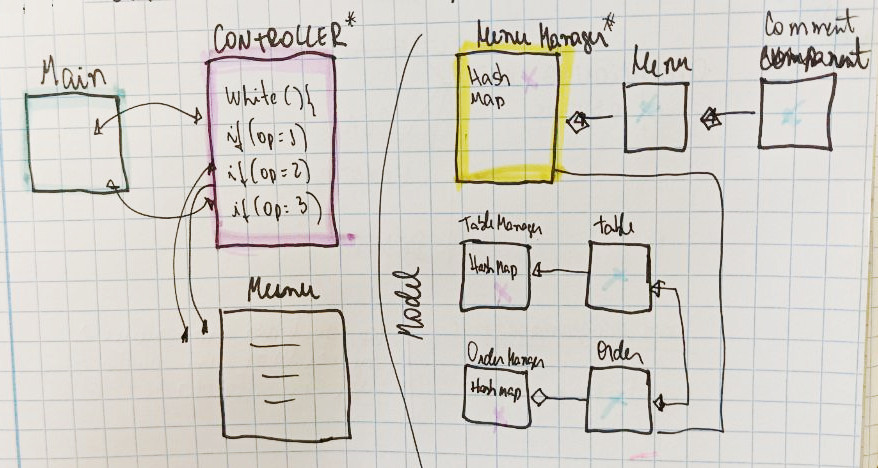 Main
CONTROLLER*
While(){
if(op=1)
if(op=2)
if(op=3)
Menu
Model
Menu Manager*
Hash
Map
Menu
Comment
Component
TableManager
HashMap
table
OrderManager
Hashmap
Order